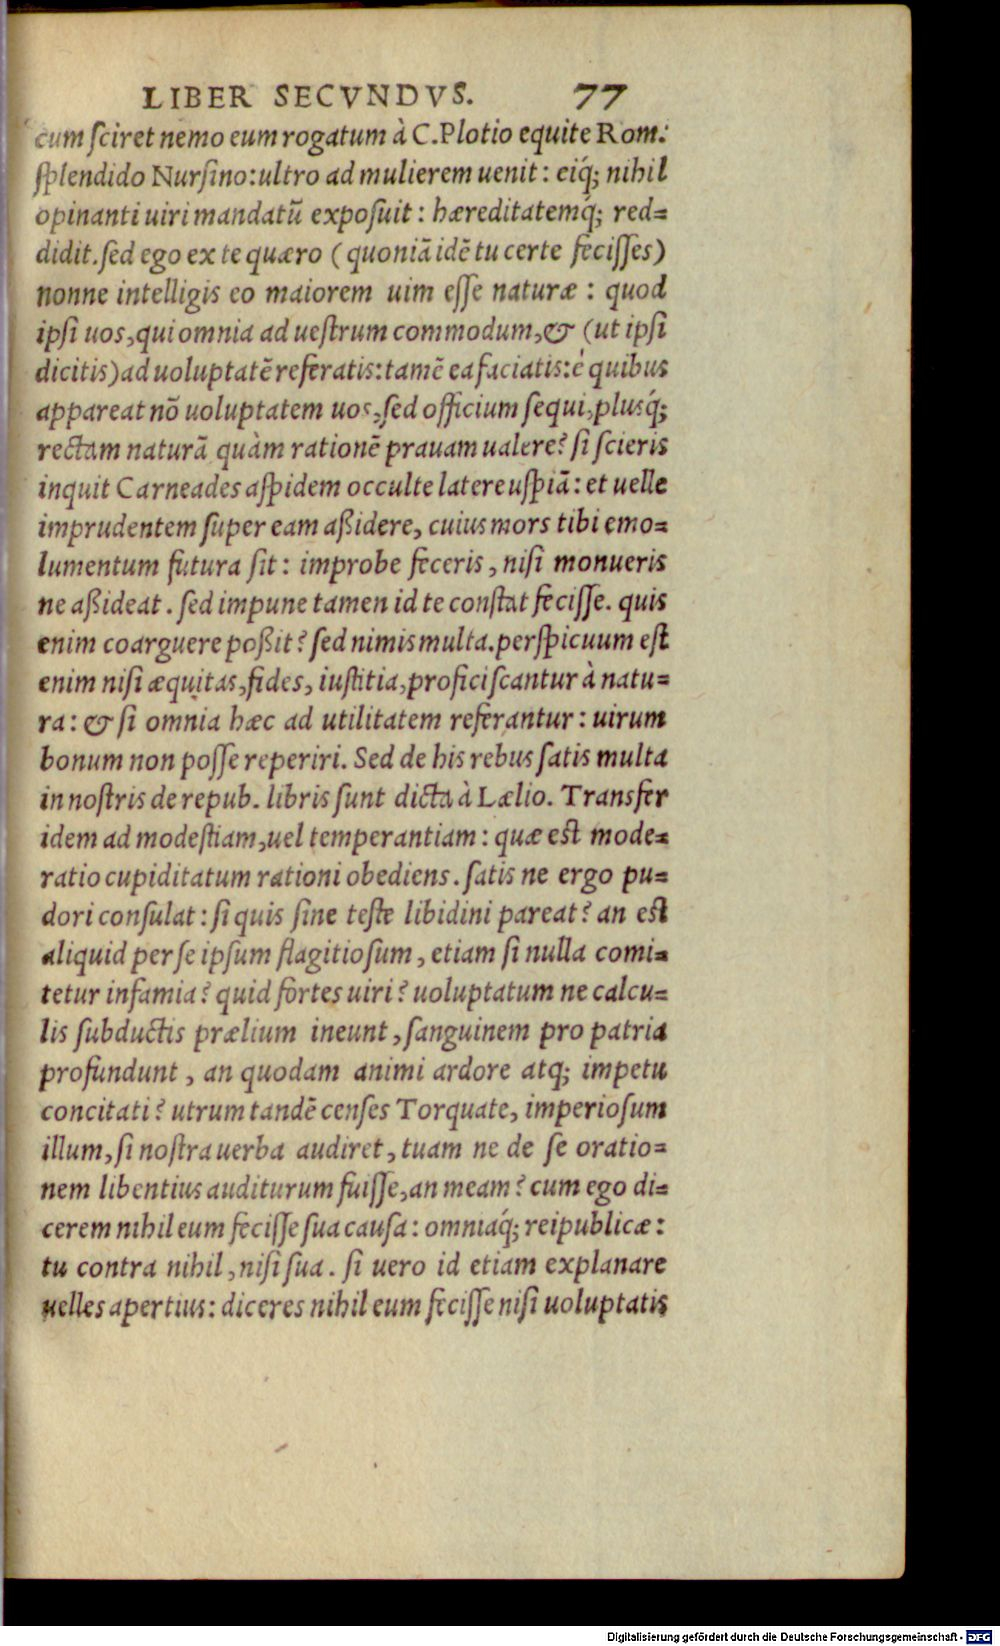 LIBER SECVNDVS. 77
cum sciret nemo eum rogatum à C.Plotio equite Rom.
splendido Nursino:ultro ad mulierem uenit: eiq́; nihil
opinanti uiri mandatũ exposuit: hæreditatemq́; red=
didit.sed ego ex te quæro (quoniã idẽ tu certe fecisses)
nonne intelligis eo maiorem uim esse naturæ: quod
ipsi uos,qui omnia ad uestrum commodum,& (ut ipsi
dicitis)ad uoluptatẽ referatis:tamẽ ea faciatis:è quibus
appareat nõ uoluptatem uos,sed officium sequi,plusq́;
rectam naturã quàm rationẽ prauam ualere? si scieris
inquit Carneades aspidem occulte latere uspiã: et uelle
imprudentem super eam aßidere, cuius mors tibi emo=
lumentum futura sit: improbe feceris, nisi monueris
ne aßideat. sed impune tamen id te constat fecisse. quis
enim coarguere poßit? sed nimis multa.perspicuum est
enim nisi æquitas,fides, iustitia,proficiscantur à natu=
ra: & si omnia hæc ad utilitatem referantur: uirum
bonum non posse reperiri. Sed de his rebus satis multa
in nostris de repub. libris sunt dicta à Lælio. Transfer
idem ad modestiam,uel temperantiam: quæ est mode=
ratio cupiditatum rationi obediens. satis ne ergo pu=
dori consulat: si quis sine teste libidini pareat? an est
aliquid per se ipsum flagitiosum, etiam si nulla comi=
tetur infamia? quid fortes uiri? uoluptatum ne calcu=
lis subductis prælium ineunt, sanguinem pro patria
profundunt, an quodam animi ardore atq; impetu
concitati? utrum tandẽ censes Torquate, imperiosum
illum, si nostra uerba audiret, tuam ne de se oratio=
nem libentius auditurum fuisse,an meam? cum ego di=
cerem nihil eum fecisse sua causa: omniaq́; reipublicæ:
tu contra nihil, nisi sua. si uero id etiam explanare
uelles apertius: diceres nihil eum fecisse nisi uoluptatis
Digitalisierung gefördert durch die Deutsche Forschungsgemeinschaft - DFG